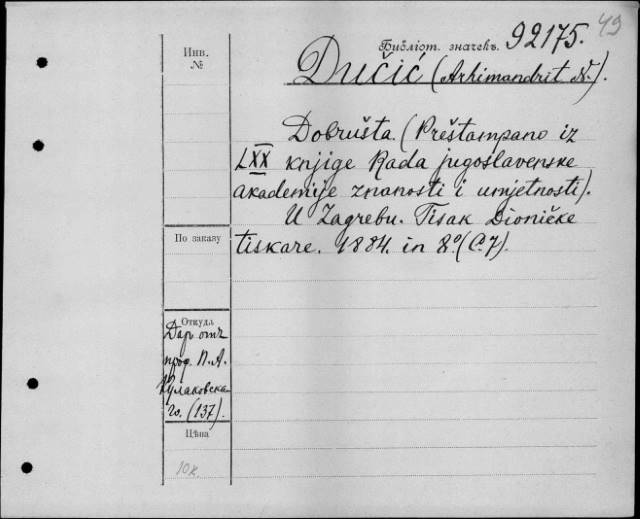 49
Библіот. значекъ. 92175.
Инв.
№
Dučić (Arhimandrit N.).
Dobrušta (Preštampano iz
LXX knjige Rada jugoslavenske
akademije znanosti i umjetnosti).
U Zagrebu. Tisak Dioničke
tiskare. 1884. in 8º (C. 7).
По заказу
Откуда
Даръ отъ
проф. П. А.
Кулаковска-
го. (137).
Цѣна
10к.